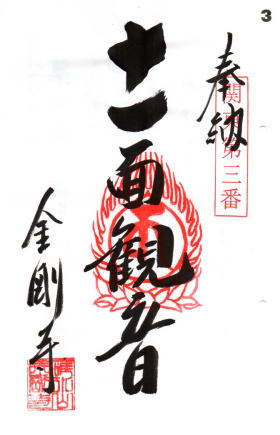 3
奉納
関東第三番
十一面観音
金剛寺